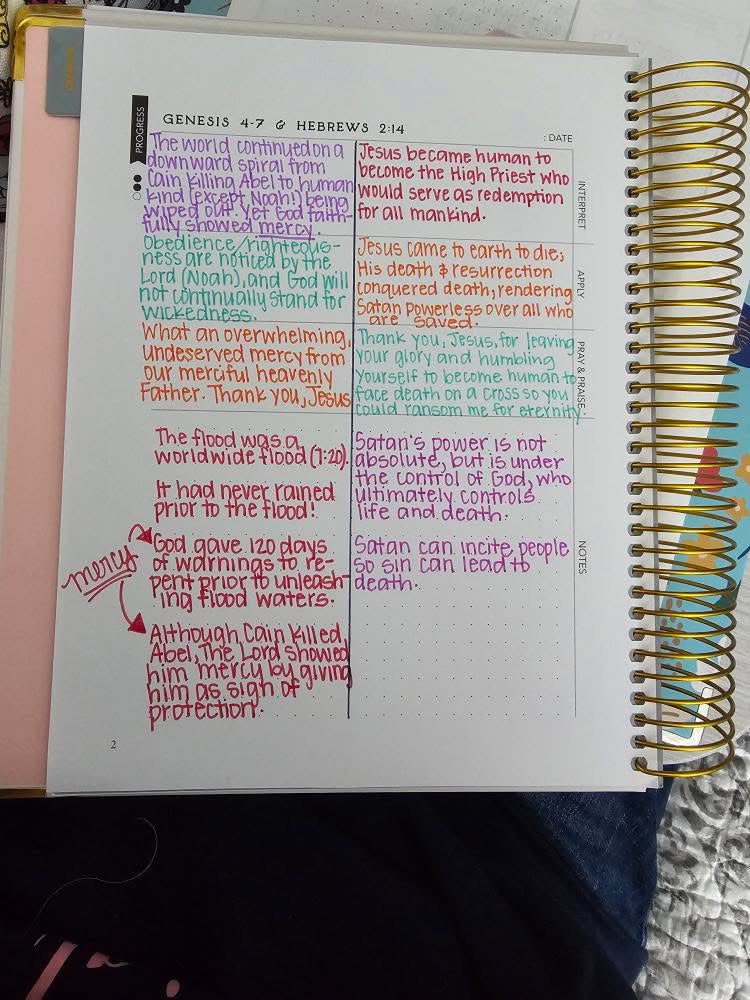 PROGRESS
GENESIS 4-7 & HEBREWS 2:14
: DATE
The world continued on a
downward spiral from
Cain killing Abel to human
kind (except Noah!) being
wiped out. Yet God faith-
fully showed mercy.
Obedience/righteous-
ness are noticed by the
Lord (Noah), and God will
not continually stand for
wickedness.
What an overwhelming,
undeserved mercy from
our merciful heavenly
Father. Thank you, Jesus
The flood was a
worldwide flood (7:20).
It had never rained
prior to the flood!
mercy
God gave 120 days
of warnings to re-
pent prior to unleash-
ing flood waters.
Although Cain killed
Abel, The Lord showed
him mercy by giving
him as sign of
protection.
Jesus became human to
become the High Priest who
would serve as redemption
for all mankind.
INTERPRET
Jesus came to earth to die;
His death & resurrection
conquered death, rendering
Satan powerless over all who
are saved.
APPLY
Thank you, Jesus, for leaving
your glory and humbling
yourself to become human to
face death on a cross so you
could ransom me for eternity.
PRAY & PRAISE
Satan's power is not
absolute, but is under
the control of God, who
ultimately controls
life and death.
Satan can incite people
so sin can lead to
death.
NOTES
2